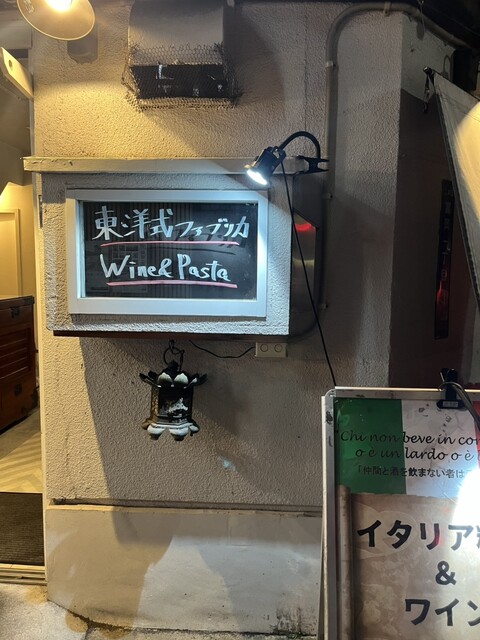 東洋式ファブリカ
Wine & Pasta
Chi non beve in co
o è un lardo o è
「仲間と酒を飲まない者は
イタリア料
&
ワイン